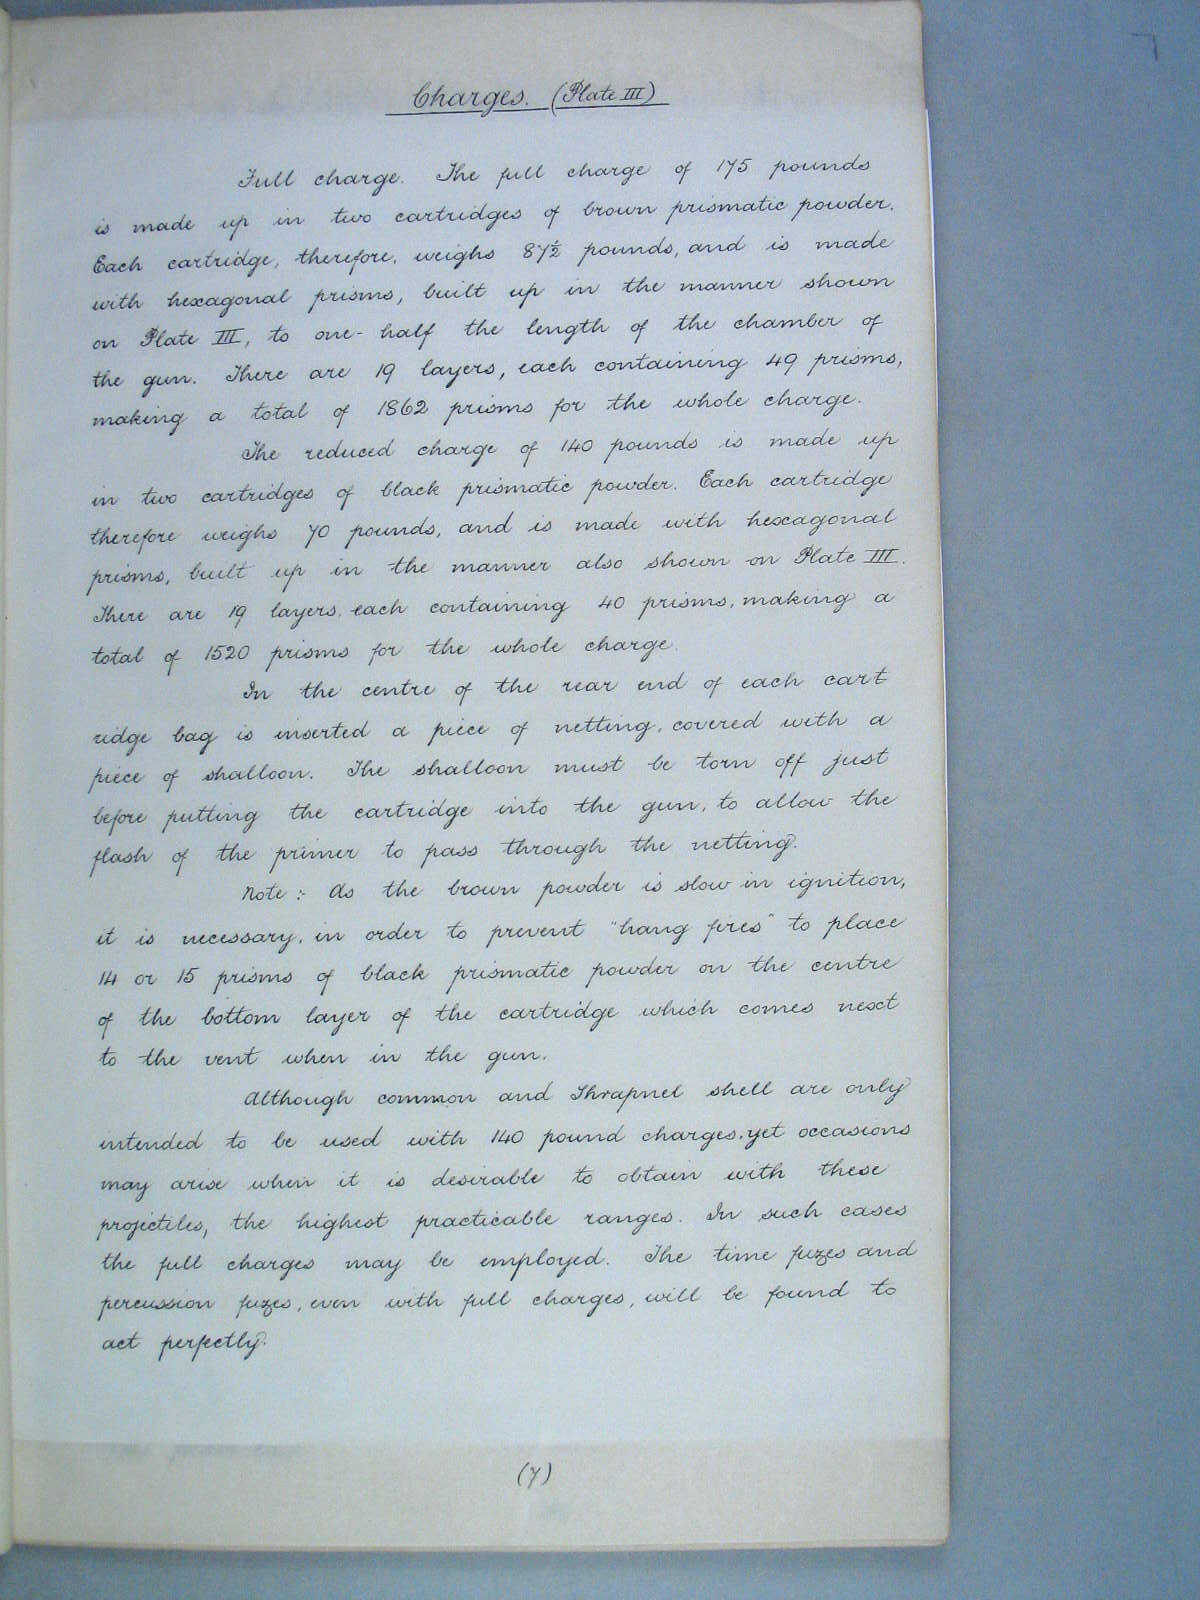 Charges. (Plate III)
Full charge. The full charge of 175 pounds
is made up in two cartridges of brown prismatic powder.
Each cartridge, therefore, weighs 87½ pounds, and is made
with hexagonal prisms, built up in the manner shown
on Plate III, to one-half the length of the chamber of
the gun. There are 19 layers, each containing 49 prisms,
making a total of 1862 prisms for the whole charge.
The reduced charge of 140 pounds is made up
in two cartridges of black prismatic powder. Each cartridge
therefore weighs 70 pounds, and is made with hexagonal
prisms, built up in the manner also shown on Plate III.
There are 19 layers, each containing 40 prisms, making a
total of 1520 prisms for the whole charge.
In the centre of the rear end of each cart
ridge bag is inserted a piece of netting, covered with a
piece of shalloon. The shalloon must be torn off just
before putting the cartridge into the gun, to allow the
flash of the primer to pass through the netting.
Note :- As the brown powder is slow in ignition,
it is necessary, in order to prevent "hang fires" to place
14 or 15 prisms of black prismatic powder on the centre
of the bottom layer of the cartridge which comes next
to the vent when in the gun.
Although common and Shrapnel shell are only
intended to be used with 140 pound charges, yet occasions
may arise when it is desirable to obtain with these
projectiles, the highest practicable ranges. In such cases
the full charges may be employed. The time fuzes and
percussion fuzes, even with full charges, will be found to
act perfectly.
(7)